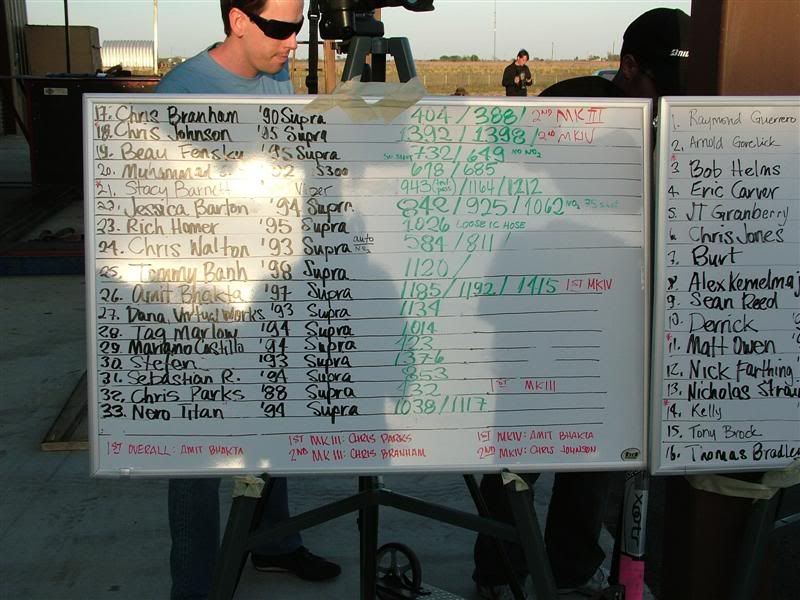 17. Chris Branham '90 Supra 404 / 388 / 2ND MK III
18. Chris Johnson '95 Supra 1392 / 1398 / 2nd MKIV
19. Beau Fensky '95 Supra 732 / 649 NO NO2
20. Muhammad S300 678 / 685
21. Stacy Barnett Viper 943 / 1164 / 1212
22. Jessica Barton '94 Supra 842 / 925 / 1062 NO2
23. Rich Homer '95 Supra 1026 LOOSE IC HOSE
24. Chris Walton '93 Supra auto NO2 584 / 811 /
25. Tommy Banh '98 Supra 1120 /
26. Amit Bhakta '97 Supra 1185 / 1192 / 1415 1ST MKIV
27. Dana, Virtual Works '93 Supra 1134
28. Tag Marlow '94 Supra 1014
29. Mariano Castillo '94 Supra 123
30. Stefen '93 Supra 1376
31. Sebastian R. '94 Supra 853
32. Chris Parks '88 Supra 1ST MKIII
33. Nero Titan '94 Supra 1038 / 1117
1ST OVERALL: AMIT BHAKTA
1ST MK III: CHRIS PARKS
2ND MK III: CHRIS BRANHAM
1ST MKIV: AMIT BHAKTA
2ND MKIV: CHRIS JOHNSON
1. Raymond Guerrero
2. Arnold Gorelick
3 Bob Helms
4. Eric Carver
5. JT Granberry
6. Chris Jones
7. Burt
8. Alex Kemelmaj
9. Sean Reed
10. Derrick
11. Matt Owen
12. Nick Farthing
13. Nicholas Strau
14. Kelly
15. Tony Brock
16. Thomas Bradley